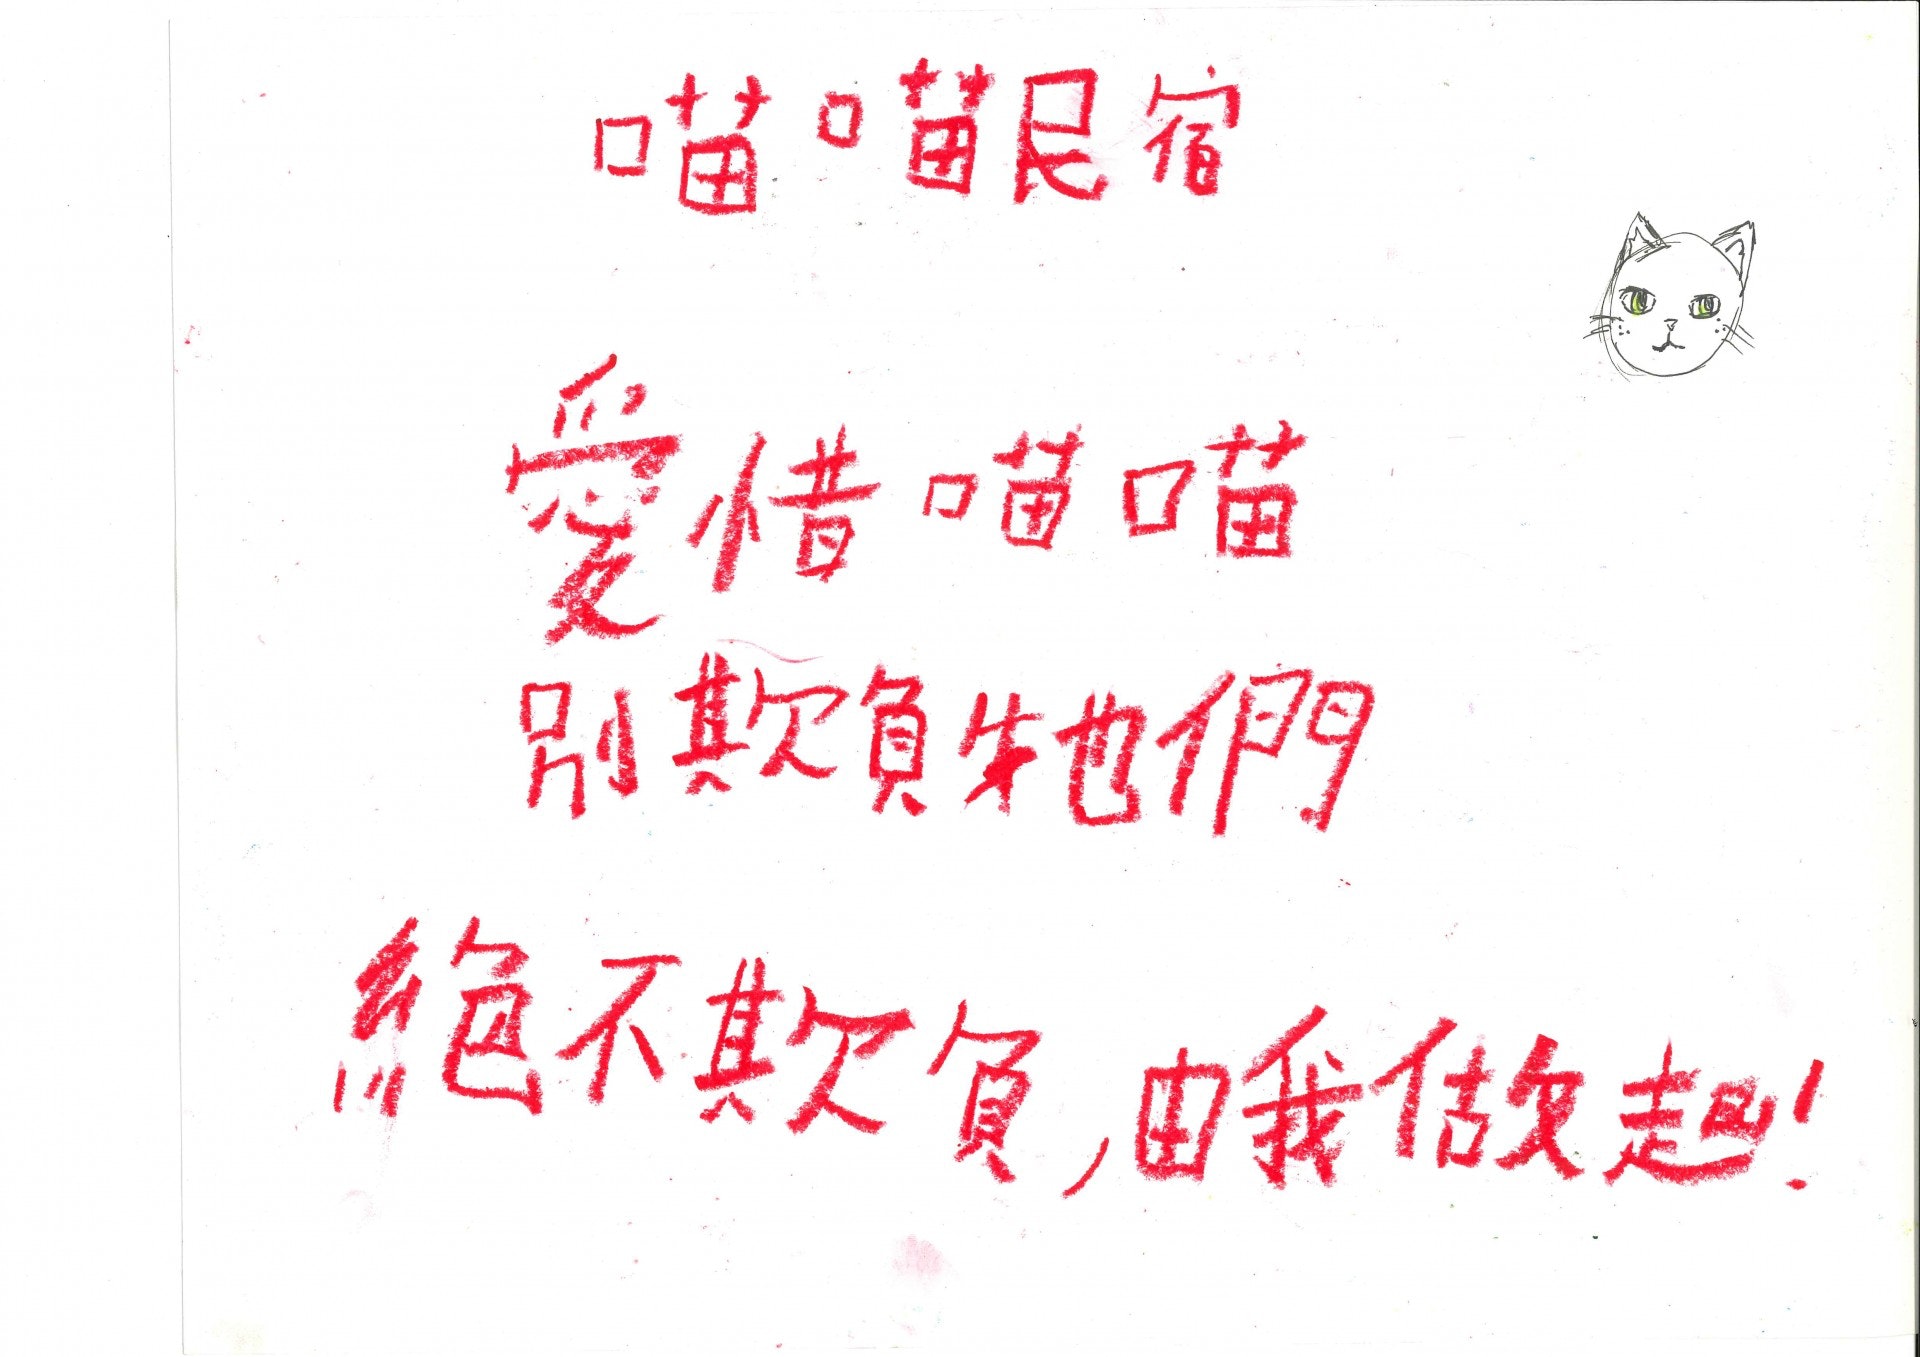 喵喵民宿
愛惜喵喵
別欺負牠們
絕不欺負,由我做起!